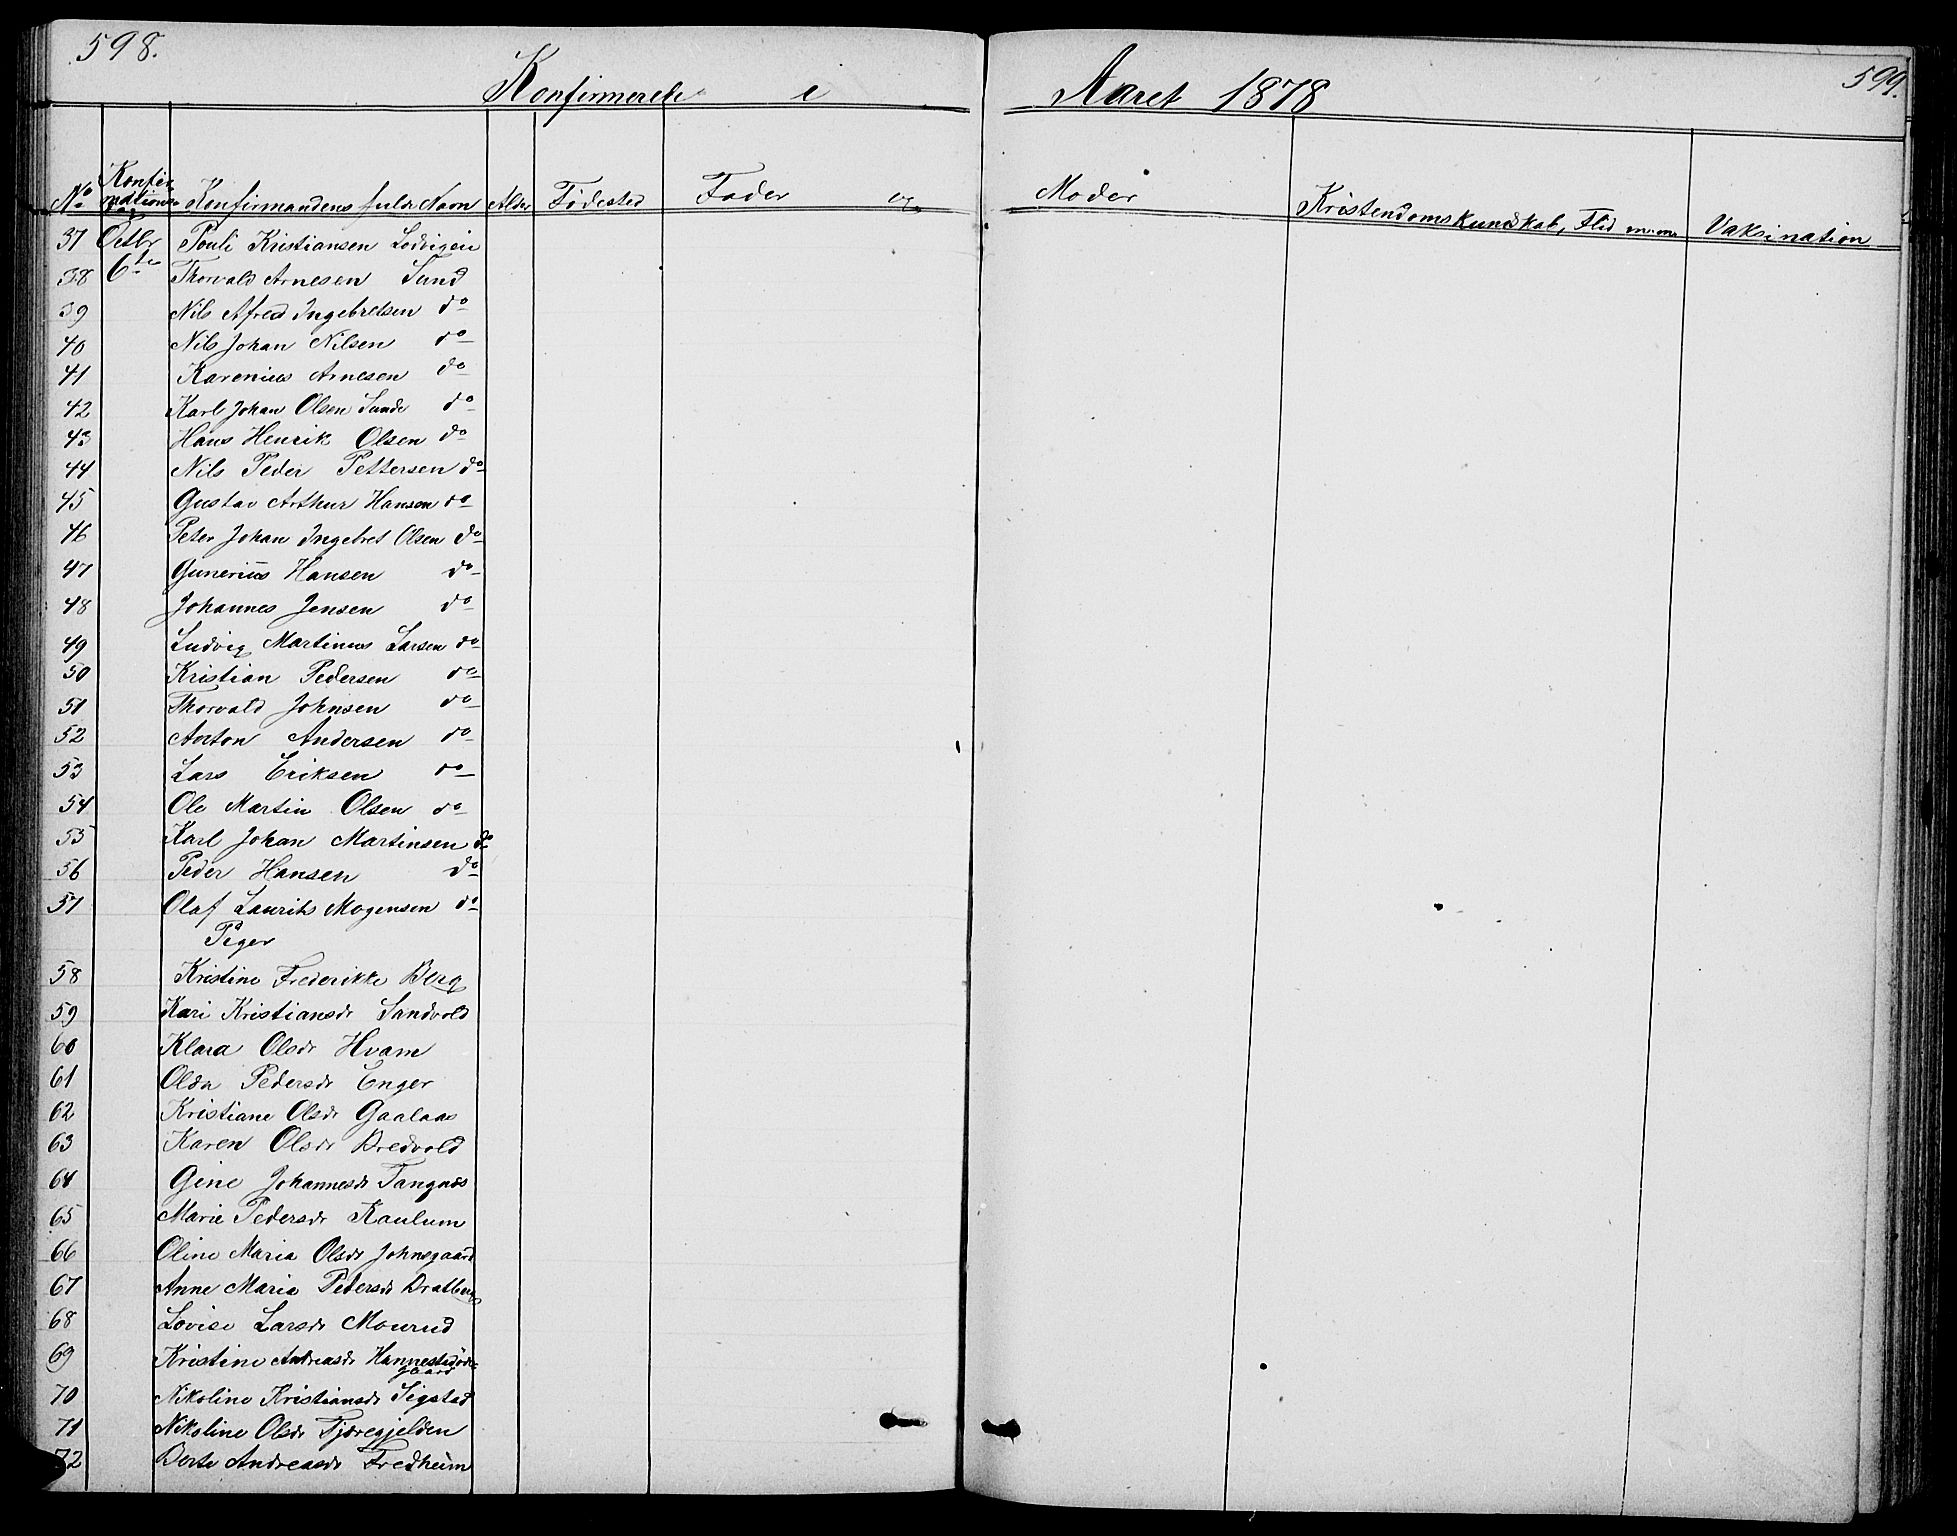 598.
599.
Konfirmerede i Aaret 1878
No Konfirmationsdag Konfirmandens fulde Navn Alder Fødested Fader og Moder Kristendomskundskab, Flid m.m. Vaksination
37 Octbr Pouli Kristiansen Lodvigeie
38 6te Thorvald Arnesen Sund
39 Nils Afred Ingebretsen do
40 Nils Johan Nilsen do
41 Karenius Arnesen do
42 Karl Johan Olsen Sunde do
43 Hans Henrik Olsen do
44 Nils Peder Pettersen do
45 Gustav Arthur Hansen do
46 Peter Johan Ingebret Olsen do
47 Gunerius Hansen do
48 Johannes Jensen do
49 Ludvig Martinus Larsen do
50 Kristian Pedersen do
51 Thorvald Johnsen do
52 Anton Andersen do
53 Lars Eriksen do
54 Ole Martin Olsen do
55 Karl Johan Martinsen do
56 Peder Hansen do
57 Olaf Laurits Mogensen do
Piger
58 Kristine Frederikke Berg
59 Kari Kristiansdr Sandvold
60 Klara Olsdr Hvam
61 Olea Pedersdr Enger
62 Kristiane Olsdr Gaalaas
63 Karen Olsdr Bredvold
64 Gine Johannesdr Tangnæs
65 Marie Pedersdr Kaulum
66 Oline Maria Olsdr Johnsgaard
67 Anne Maria Pedersdr Bratberg
68 Lovise Larsdr Mourud
69 Kristine Andreasdr Hannestadødegaard
70 Nikoline Kristiansdr Sigstad
71 Nikoline Olsdr Fjæregjelden
72 Berte Andreasdr Fredheim